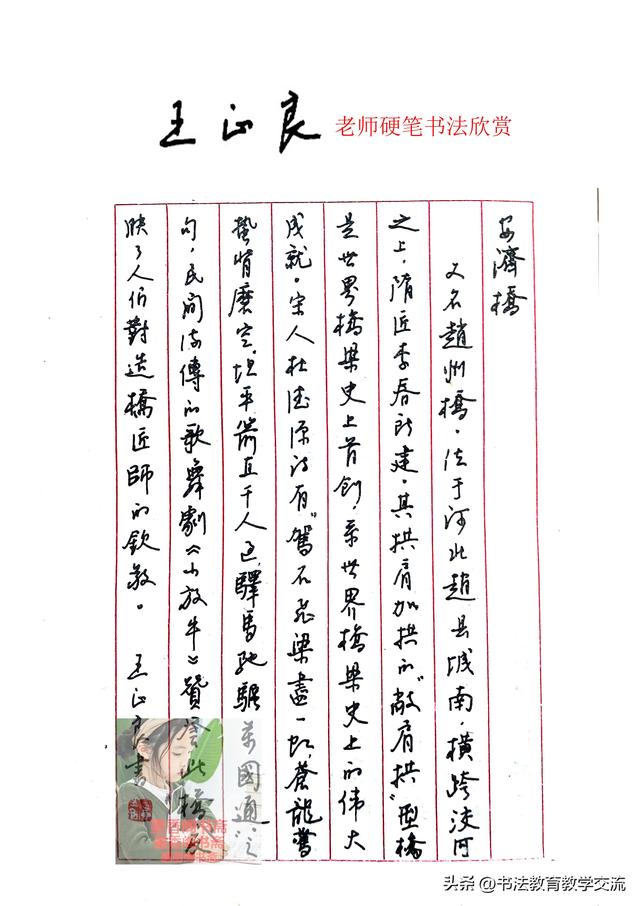 王正良 老师硬笔书法欣赏
安濟橋
又名趙州橋，位于河北趙县城南，橫跨洨河
之上，隋匠李春所建，其拱肩加拱的"敞肩拱"型橋
是世界橋梁史上首創，世界橋梁史上的伟大
成就。宋人杜德源诗有"駕石飛梁盡一虹，蒼龍驚
蟄背磨空，坦平箭直千人过，驛馬馳驅萬國通"之
句，民间流傳的歌舞劇《小放牛》贊此橋，反
映了人们對造橋匠師的欽敬。 王正良書
头条 @书法教育教学交流